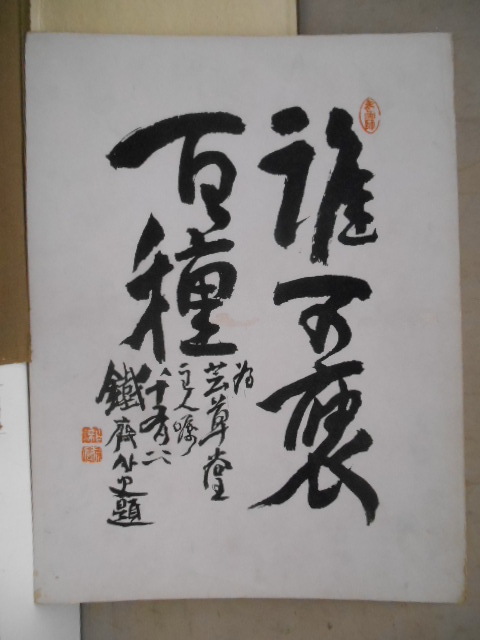 誰可褎
百種
為芸草堂
主人嘱
八十有二
鐵齋外史題